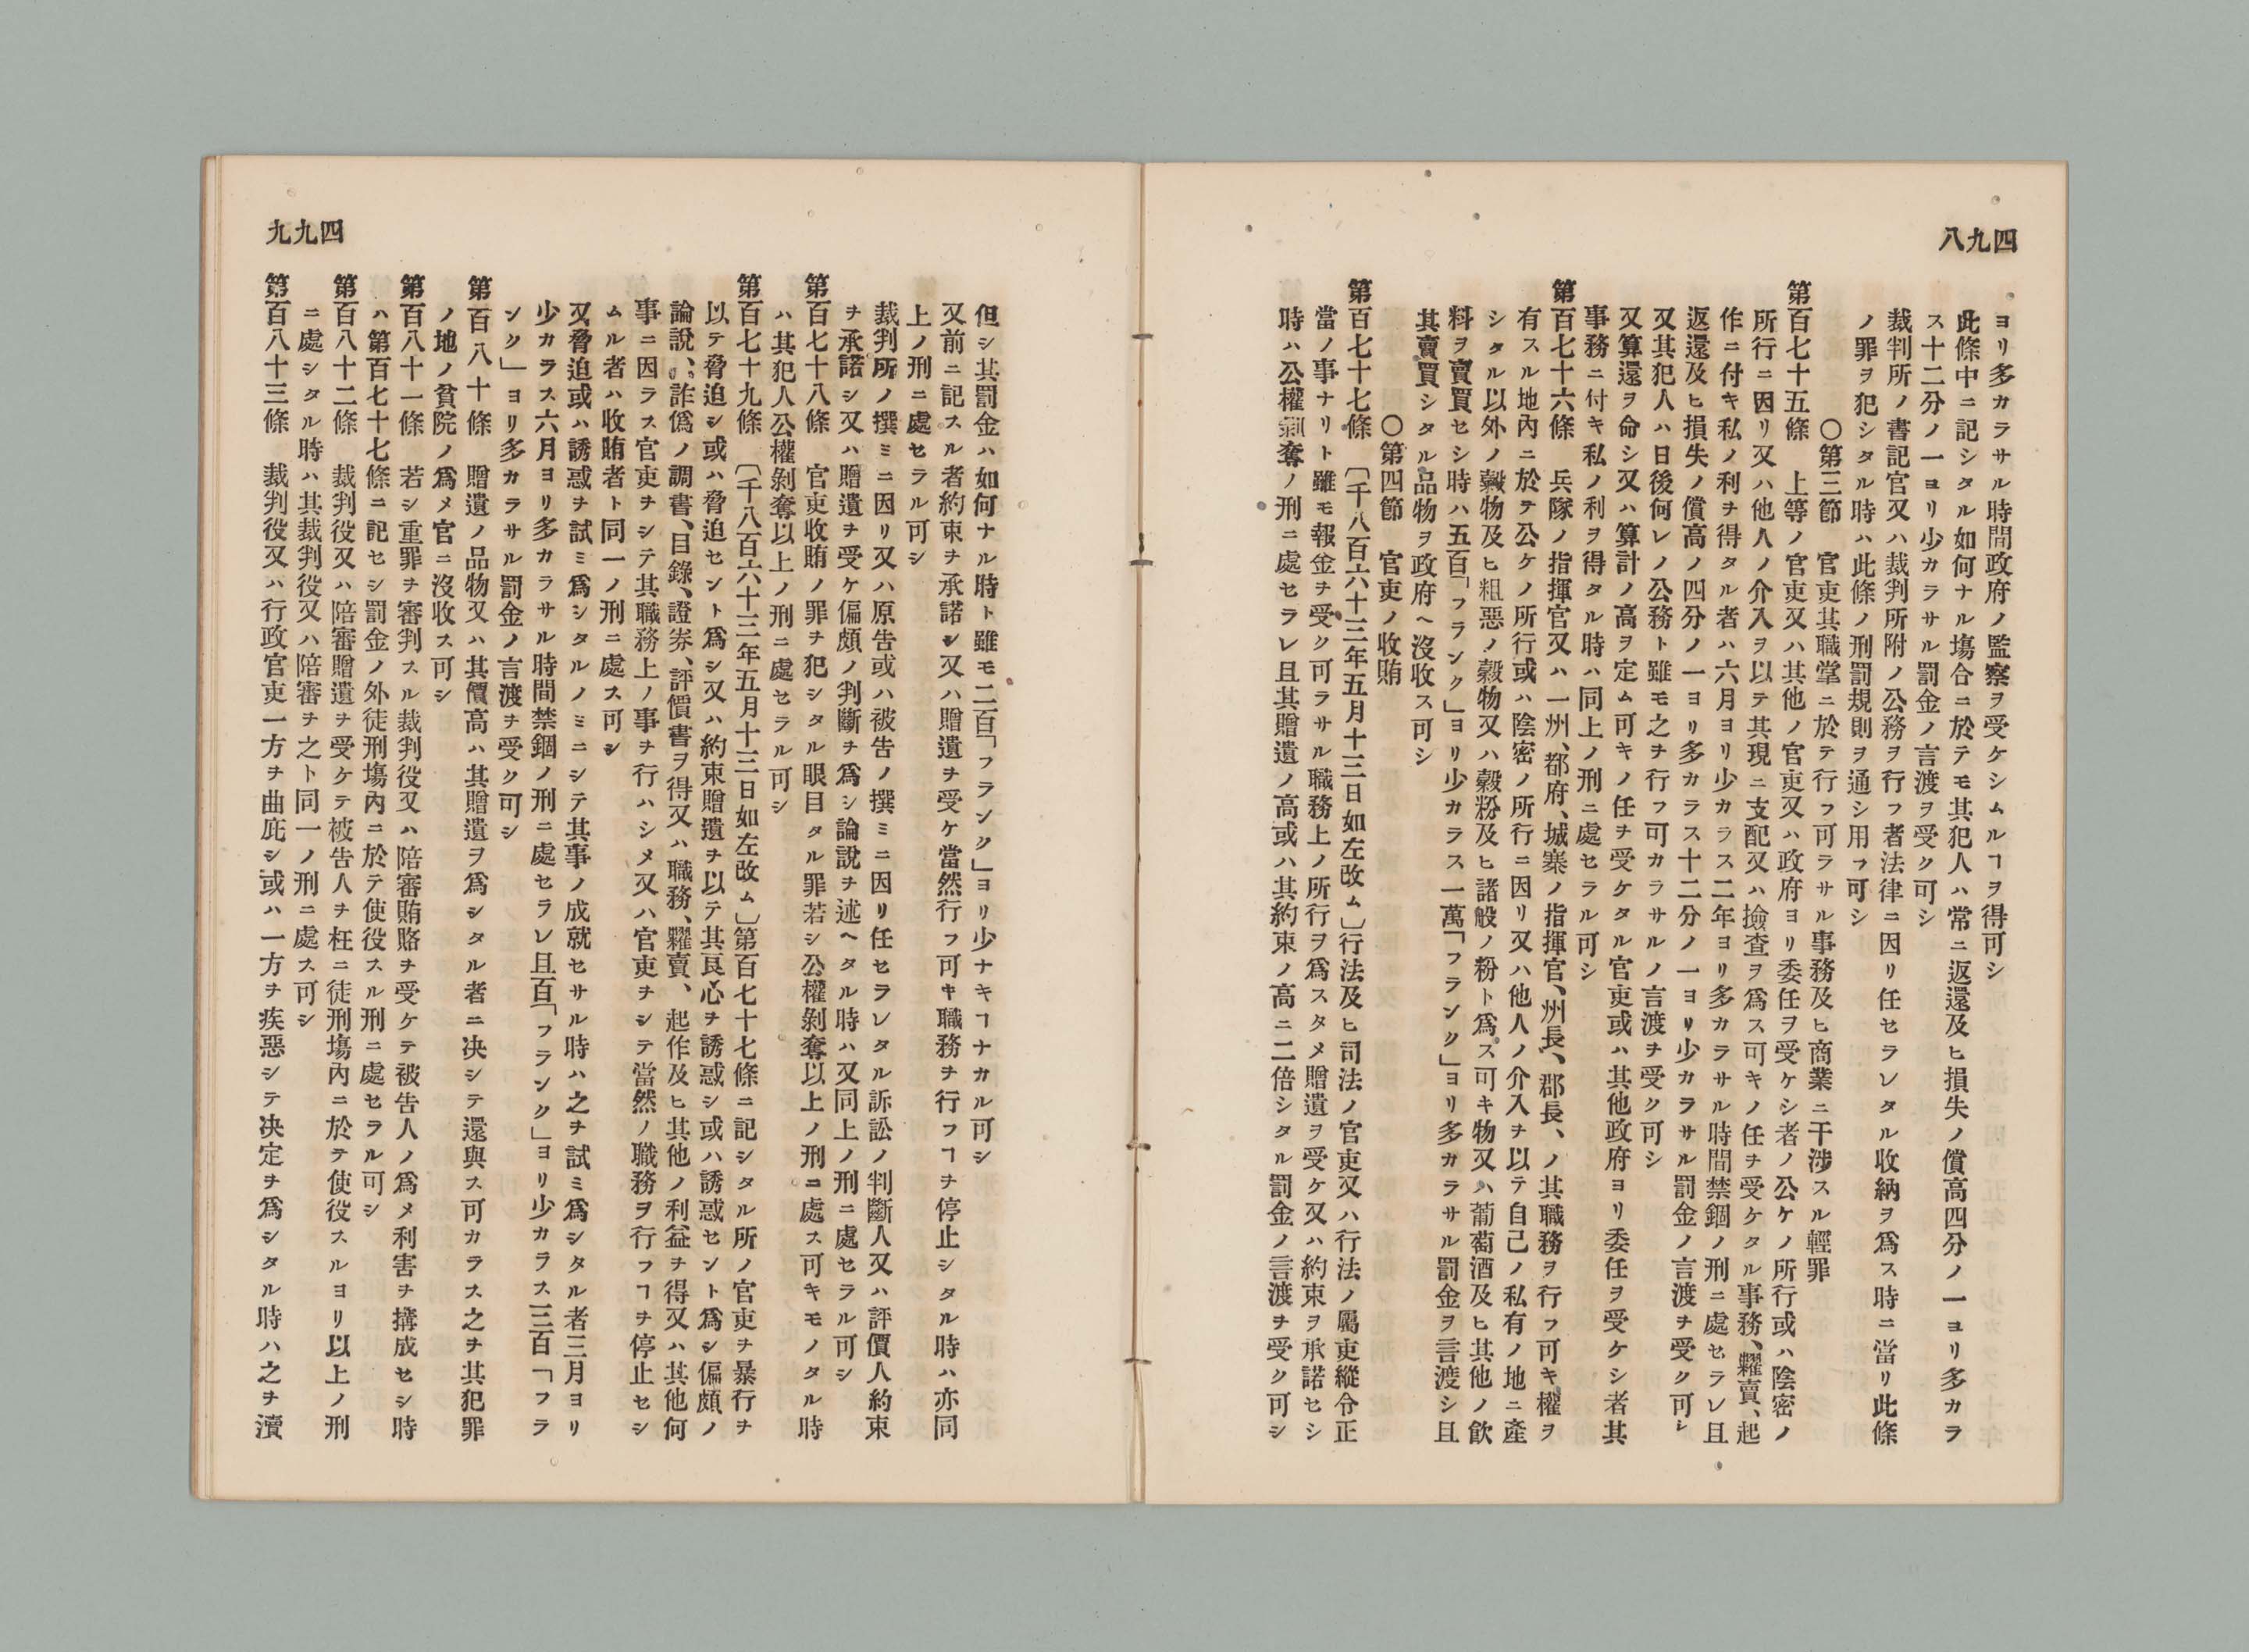 四九八
ヨリ多カラサル時間政府ノ監察ヲ受ケシムルヿヲ得可シ
此條中ニ記シタル如何ナル塲合ニ於テモ其犯人ハ常ニ返還及ヒ損失ノ償高四分ノ一ヨリ多カラ
ス十二分ノ一ヨリ少カラサル罰金ノ言渡ヲ受ク可シ
裁判所ノ書記官又ハ裁判所附ノ公務ヲ行フ者法律ニ因リ任セラレタル收納ヲ爲ス時ニ當リ此條
ノ罪ヲ犯シタル時ハ此條ノ刑罰規則ヲ通シ用フ可シ
〇第三節　官吏其職掌ニ於テ行フ可ラサル事務及ヒ商業ニ干渉スル輕罪
第百七十五條　上等ノ官吏又ハ其他ノ官吏又ハ政府ヨリ委任ヲ受ケシ者ノ公ケノ所行或ハ陰密ノ
所行ニ因リ又ハ他人ノ介入ヲ以テ其現ニ支配又ハ撿査ヲ爲ス可キノ任チ受ケタル事務、糶賣、起
作ニ付キ私ノ利チ得タル者ハ六月ヨリ少カラス二年ヨリ多カラサル時間禁錮ノ刑ニ處セラレ且
返還及ヒ損失ノ償高ノ四分ノ一ヨリ多カラス十二分ノ一ヨリ少カラサル罰金ノ言渡チ受ク可シ
又其犯人ハ日後何レノ公務ト雖モ之チ行フ可カラサルノ言渡チ受ク可シ
又算還ヲ命シ又ハ算計ノ高ヲ定ム可キノ任チ受ケタル官吏或ハ其他政府ヨリ委任ヲ受ケシ者其
事務ニ付キ私ノ利ヲ得タル時ハ同上ノ刑ニ處セラル可シ
第百七十六條　兵隊ノ指揮官又ハ一州、都府、城寨ノ指揮官、州長、郡長、ノ其職務ヲ行フ可キ權ヲ
有スル地內ニ於テ公ケノ所行或ハ陰密ノ所行ニ因リ又ハ他人ノ介入チ以テ自己ノ私有ノ地ニ產
シタル以外ノ穀物及ヒ粗惡ノ穀物又ハ穀粉及ヒ諸般ノ粉ト爲ス可キ物又ハ葡萄酒及ヒ其他ノ飮
料ヲ賣買セシ時ハ五百「フランク」ヨリ少カラス一萬「フランク」ヨリ多カラサル罰金ヲ言渡シ且
其賣買シタル品物ヲ政府ヘ沒收ス可シ
〇第四節　官吏ノ收賄
第百七十七條　〔千八百六十三年五月十三日如左改ム〕行法及ヒ司法ノ官吏又ハ行法ノ屬吏縱令正
當ノ事ナリト雖モ報金チ受ク可ラサル職務上ノ所行ヲ爲スタメ贈遺ヲ受ケ又ハ約束ヲ承諾セシ
時ハ公權剝奪ノ刑ニ處セラレ且其贈遺ノ高或ハ其約束ノ高ニ二倍シタル罰金ノ言渡チ受ク可シ
四九九
但シ其罰金ハ如何ナル時ト雖モ二百「フランク」ヨリ少ナキヿナカル可シ
又前ニ記スル者約束チ承諾シ又ハ贈遺チ受ケ當然行フ可キ職務チ行フヿチ停止シタル時ハ亦同
上ノ刑ニ處セラル可シ
裁判所ノ撰ミニ因リ又ハ原告或ハ被告ノ撰ミニ因リ任セラレタル訴訟ノ判斷人又ハ評價人約束
チ承諾シ又ハ贈遺チ受ケ偏頗ノ判斷チ爲シ論說チ述ヘタル時ハ又同上ノ刑ニ處セラル可シ
第百七十八條　官吏收賄ノ罪チ犯シタル眼目タル罪若シ公權剝奪以上ノ刑ニ處ス可キモノタル時
ハ其犯人公權剝奪以上ノ刑ニ處セラル可シ
第百七十九條　〔千八百六十三年五月十三日如左改ム〕第百七十七條ニ記シタル所ノ官吏チ暴行チ
以テ脅迫シ或ハ脅迫セント爲シ又ハ約束贈遺チ以テ其良心チ誘惑シ或ハ誘惑セント爲シ偏頗ノ
論說、詐僞ノ調書、目錄、證券、評價書ヲ得又ハ職務、糶賣、起作及ヒ其他ノ利益チ得又ハ其他何
事ニ因ラス官吏チシテ其職務上ノ事チ行ハシメ又ハ官吏チシテ當然ノ職務ヲ行フヿチ停止セシ
ムル者ハ收賄者ト同一ノ刑ニ處ス可シ
又脅迫或ハ誘惑チ試ミ爲シタルノミニシテ其事ノ成就セサル時ハ之チ試ミ爲シタル者三月ヨリ
少カラス六月ヨリ多カラサル時間禁錮ノ刑ニ處セラレ且百「フランク」ヨリ少カラス三百「フラ
ンク」ヨリ多カラサル罰金ノ言渡チ受ク可シ
第百八十條　贈遺ノ品物又ハ其價高ハ其贈遺ヲ爲シタル者ニ决シテ還與ス可カラス之チ其犯罪
ノ地ノ貧院ノ爲メ官ニ沒收ス可シ
第百八十一條　若シ重罪チ審判スル裁判役又ハ陪審賄賂チ受ケテ被告人ノ爲メ利害チ搆成セシ時
ハ第百七十七條ニ記セシ罰金ノ外徒刑塲內ニ於テ使役スル刑ニ處セラル可シ
第百八十二條　裁判役又ハ陪審贈遺チ受ケテ被告人チ枉ニ徒刑塲內ニ於テ使役スルヨリ以上ノ刑
ニ處シタル時ハ其裁判役又ハ陪審チ之ト同一ノ刑ニ處ス可シ
第百八十三條　裁判役又ハ行政官吏一方チ曲庇シ或ハ一方チ疾惡シテ决定チ爲シタル時ハ之チ瀆